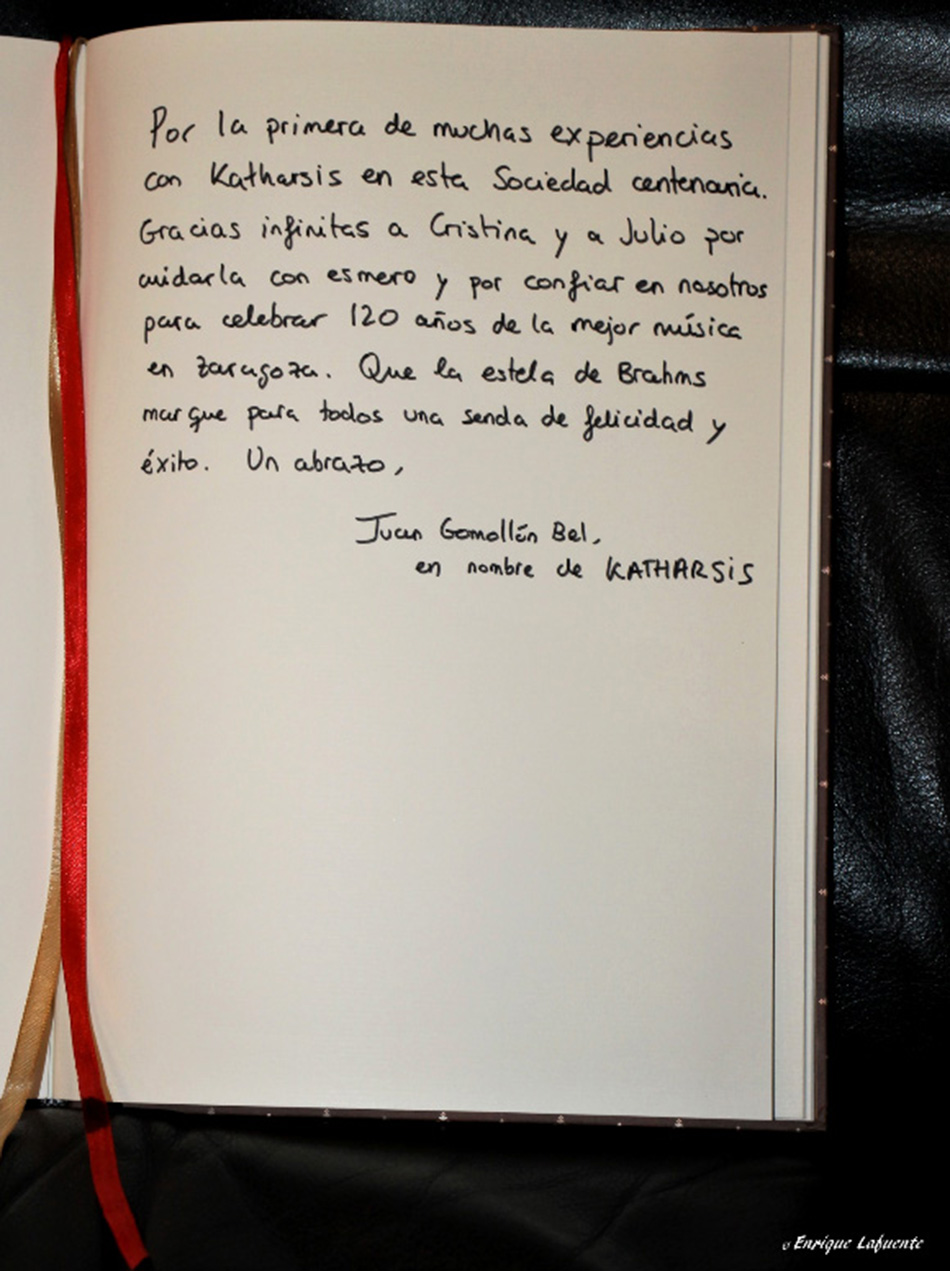 Por la primera de muchas experiencias
con Katharsis en esta Sociedad centenaria.
Gracias infinitas a Cristina y a Julio por
cuidarla con esmero y por confiar en nosotros
para celebrar 120 años de la mejor música
en Zaragoza. Que la estela de Brahms
marque para todos una senda de felicidad y
éxito. Un abrazo,
Juan Gomollón Bel,
en nombre de KATHARSiS
© Enrique Lafuente